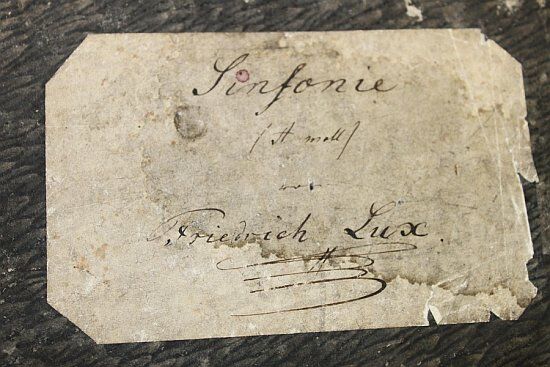 Sinfonie
(A moll)
von
Friedrich Lux.